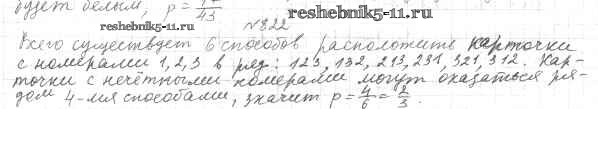 будет белым, p =
43
reshebnik5-11.ru
reshebnik5-11.ru
№822
Всего существует 6 способов расположить карточки
с номерами 1, 2, 3 в ряд: 123, 132, 213, 231, 321, 312. Кар-
точки с нечётными номерами могут оказаться ря-
дом 4-мя способами, значит p = 4/6 = 2/3.